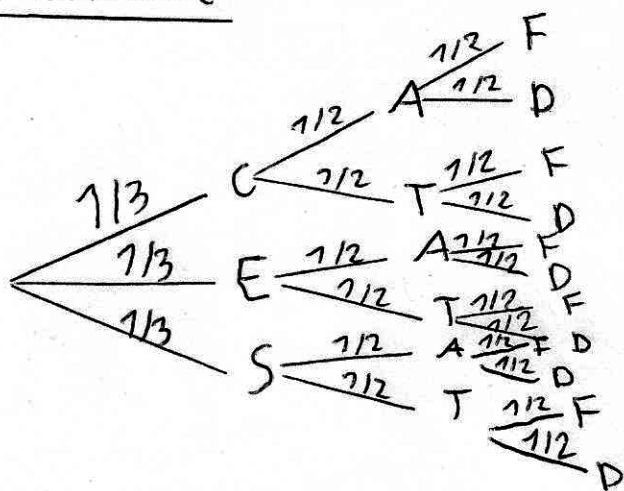 1/2 F
1/2 D
A
1/2
1/2 T 1/2 F
1/2 D
1/3 C
1/3 E 1/2 A 1/2 F
1/2 D
1/2 T 1/2 F
1/2 D
1/3 S 1/2 A 1/2 F
1/2 D
1/2 T 1/2 F
1/2 D